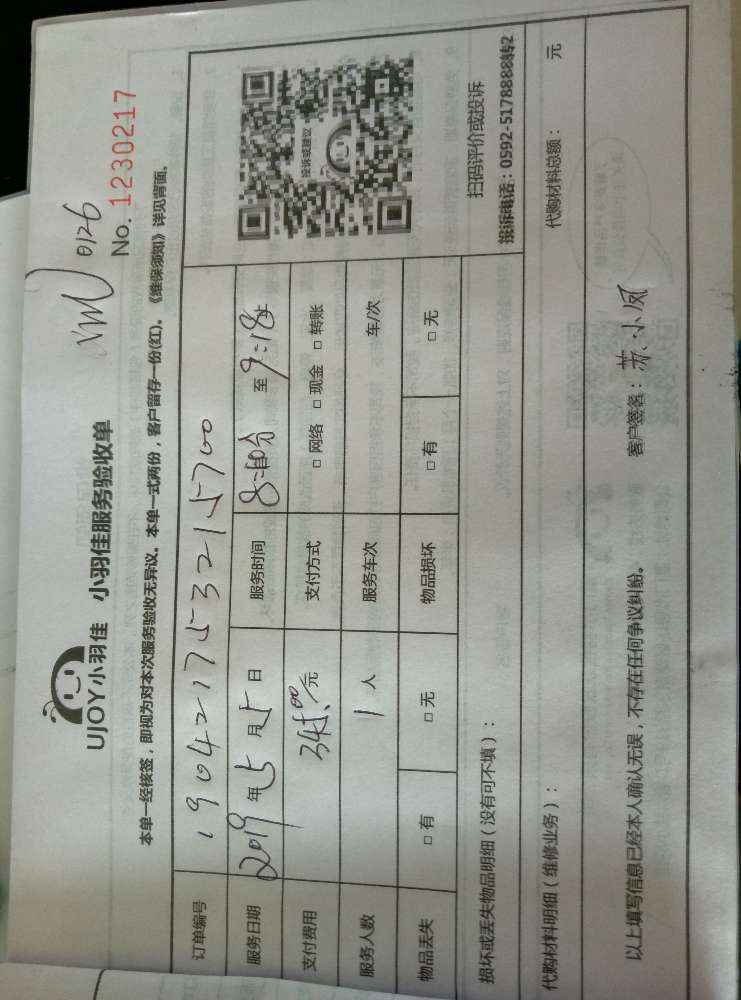 UJOY小羽佳 小羽佳服务验收单
0126
No. 1230217
本单一经核签，即视为对本次服务验收无异议。本单一式两份，客户留存一份(红)。《维保须知》详见背面。
订单编号 190421753215700
服务日期 2019 年 5 月 5 日 服务时间 至 9:18
支付费用 345.00 元 支付方式 □ 网络 □ 现金 □ 转账
服务人数 1 人 服务车次 车/次
物品丢失 □ 有 □ 无 物品损坏 □ 有 □ 无
投诉或建议
扫码评价或投诉
投诉电话：0592-5178888转2
损坏或丢失物品明细（没有可不填）：
代购材料明细（维修业务）： 代购材料总额： 元
以上填写信息已经本人确认无误，不存在任何争议纠纷。 客户签名：苏小凤